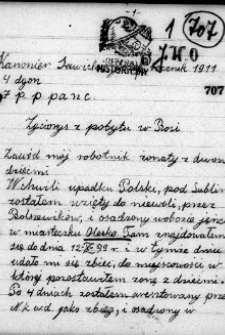 1 707
J.W.O
HISTORYCZNE
Kanonier Sawicki rocznik 1911
4 dyon
7 p p panc.
707
Życiorys z pobytu w Rosi
Zawód mój robotnik żonaty z dwom
dziećmi
W chwili upadku Polski, pod Lublin
zostałem wzięty do niewoli, przez
Bolszewików, i osadzony w obozie jeńc
w miasteczku Olesko Tam znajdowałem
się do dnia 12-X-39 r i w tymże dniu
udało mi się zbiec, do miejscowości w
której pozostawiłem żonę z dziećmi.
Po 4 dniach zostałem aresztowany prze
N.k.w.d. jako zbieg, i osadzony w